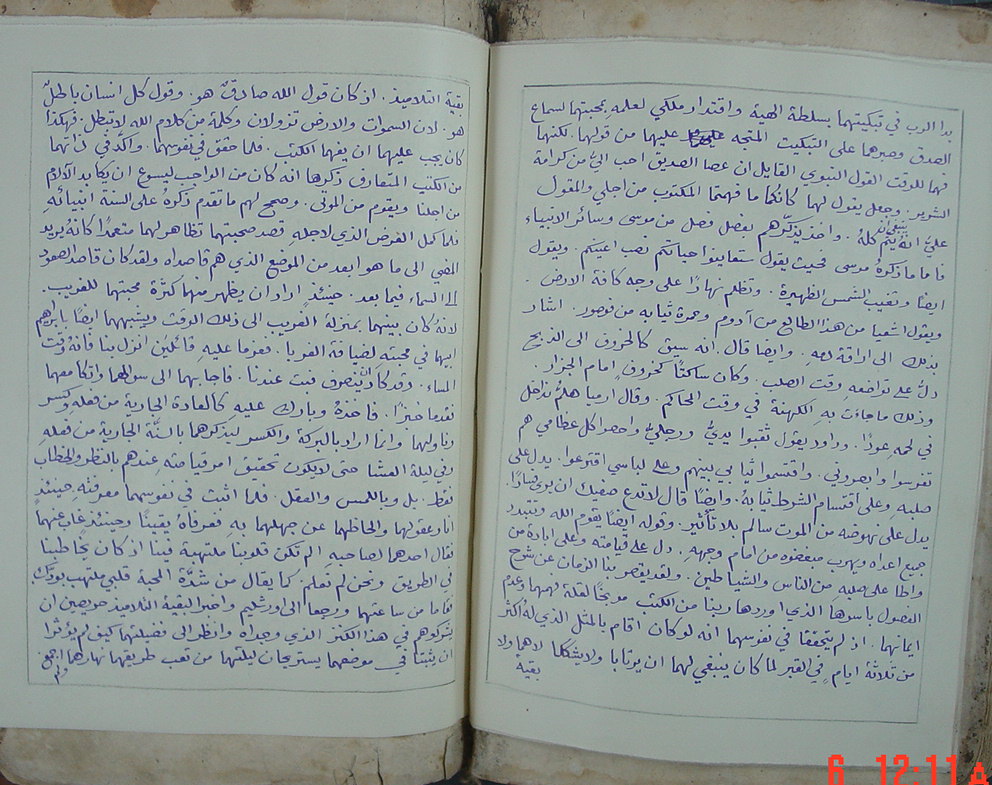 بدا الرب في تبكيتهما بسلطة الهية واقتدار ملكي لعلمه بمحبتهما لسماع
الصدق وصبرهما على التبكيت المتجه عليهما من قولها. لكنهما
فهما للوقت القول النبوي القايل ان عصا الصديق احب اليّ من كرامة
الشرير. وجعل يقول لهما كانكما ما فهمتما المكتوب من اجلي والمقول
عليّ انه ينبغي ان يتم كلهُ. واخذ يذكّرهم بفصل فصل من موسى وساير الانبياء
فاما ما ذكرهُ موسى فحيث يقول ستعاينوا حياتكم نصب اعينكم. ويقول
ايضًا وتغيب الشمس الظهيرة. وتظلم نهارًا على وجه كافة الارض.
ويقول اشعيا من هذا الطالع من آدوم وحمرة ثيابه من فوصور. اشار
بذلك الى اراقة دمهِ. وايضا قال انه سيق كالخروف الى الذبح
دلّ على تواضعهِ وقت الصلب. وكان ساكتًا كخروفٍ امام الجزار.
وذلك ما جاءت بهِ الكهنة في وقت المحاكم. وقال ارميا هلمّ نداخل
في لحمهِ عودًا. وداود يقول ثقبوا يديّ ورجليّ واحصوا كل عظامي هم
تفرسوا وابصروني. واقتسموا ثيابي بينهم وعلى لباسي اقترعوا. يدل على
صلبهِ وعلى اقتسام الشرط ثيابهُ. وايضًا قال لا تدع صفيك ان يرى فسادًا.
يدل على نهوضه من الموت سالم بلا تأثير. وقوله ايضًا يقوم الله وتتبدد
جميع اعداه ويهرب مبغضوه من امام وجههِ. دل على قيامته وعلى ابادة من
واطا على صلبهِ من الناس والشياطين. ولقد يقصر بنا الزمان عن شرح
الفصول باسرها الذي اوردها ربنا من الكتب موبخًا لقلة فهمهما وعدم
ايمانهما. اذ لم يتحققا في نفوسهما انه لو كان اقام بالمثل الذي لهُ اكثر
من ثلاثة ايام في القبر لما كان ينبغي لهما ان يرتابا ولا يشككا لا هما ولا
بقية
بقية التلاميذ. اذ كان قول الله صادقٌ هو. وقول كل انسان باطلٌ
هو. لان السموات والارض تزولان وكلمة من كلام الله لا تبطل. فهكذا
كان يجب عليهما ان يفهما الكتب. فلما حقق في نفوسهما. واكّد في ذاتهما
من الكتب المتعارف ذكرها انه كان من الواجب ليسوع ان يكابد الآلام
من اجلنا ويقوم من الموتى. وصحح لهم ما تقدم ذكرهُ على السنة انبيائهِ
فلما كمل الغرض الذي لاجلهِ قصد صحبتهما تظاهر لهما متعمدًا كانهُ يريد
المضي الى ما هو ابعد من الموضع الذي هم قاصداه ولقد كان قاصد الصعود
الى السماء فيما بعد. حينئذٍ اراد ان يظهر منهما كثرة محبتهما للغريب.
لانهُ كان بينهما بمنزلة الغريب الى ذلك الوقت ويشبههما ايضًا بابرهيم
ابيهما في محبته لضيافة الغربا. فعزما عليهِ قائلين انزل بنا فانهُ وقت
المساء. وقد كاد ينصرف فبت عندنا. فاجابهما الى سوالهما واتكا معهما
فقدما خبزًا. فاخذهُ وبارك عليه كالعادة الجارية من فعله وكسر
وناولهما وانما اراد بالبركة والكسر ليذكرهما بالسنّة الجارية من فعلهِ
وفي ليلة العشا حتى لا يكون تحقيق امر قيامته عندهم بالنظر والخطاب
فقط. بل وباللمس والعقل. فلما اثبت في نفوسهما معرفتهِ حينئذٍ
انار عقولهما والحاظهما عن جهلهما بهِ فعرفاهُ يقينًا وحينئذٍ غاب عنهما
فقال احدهما لصاحبهِ الم تكن قلوبنا ملتهبة فينا اذ كان يخاطبنا
في الطريق ونحن لم نعلم. كما يقال من شدّة المحبة قلبي ملتهب بودّك
فقاما من ساعتهما ورجعا الى اورشليم واخبرا لبقية التلاميذ حريصين ان
يشركوهم في هذا الكنز الذي وجداه وانظر الى فضيلتهما كيف لم يؤثرا
ان يثبتا في موضعهما يستريحان ليلتهما من تعب طريقهما نهارهما اجمع
ولم
6 12:11 A